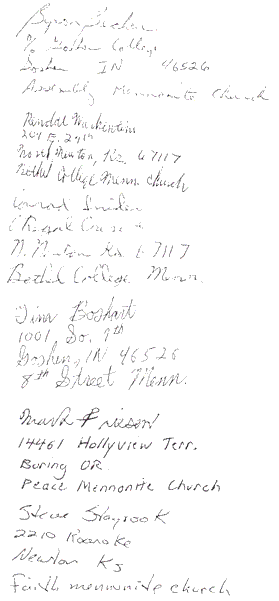 Byron
% Goshen College
Goshen IN 46526
Assembly Mennonite Church
Randal
204 E. 24th
North Newton, Ks. 67117
Bethel College Menn. Church
Conrad
N. Newton Ks 67117
Bethel College Menn.
Tina Boshart
1001 So. 9th
Goshen, IN 46526
8th Street Menn.
Mark Friesen
14461 Hollyview Terr.
Boring OR.
Peace Mennonite Church
Steve
2210 Roanoke
Newton Ks
Faith mennonite church